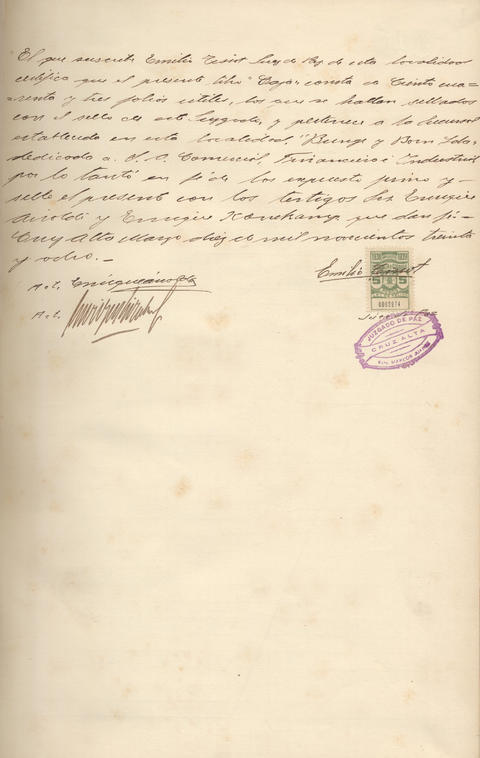 El que suscribe Emilio Tissot Juez de Paz de esta localidad
certifica que el presente libro "Caja" consta de Treinta ma-
renta y tres folios utiles, los que se hallan sellados
con el sello de este Juzgado, y pertenece a la sucursal
establecida en esta localidad, "Bunge y Born Lda.
dedicada a. S. A. Comercial, Financiera é Industrial
por lo tanto en fé de lo expuesto firmo y
sello el presente con los testigos Sres Enrique
y Enrique que dan fé.-
Cruz Alta Marzo diez de mil novecientos treinta
y ocho.-
Emilio Tissot
5 5
0062974
Juez de Paz
JUZGADO DE PAZ
CRUZ ALTA
DEP. MARCOS JUAREZ